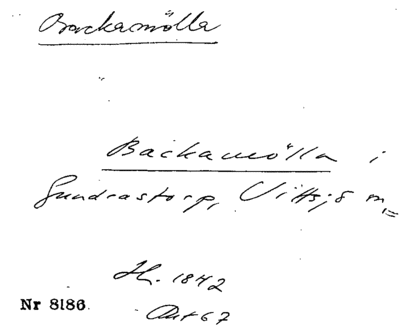 Backamölla
Backamölla i
Gundrastorp, Vittsjö
H. 1842
Nr 8186
Akt 67